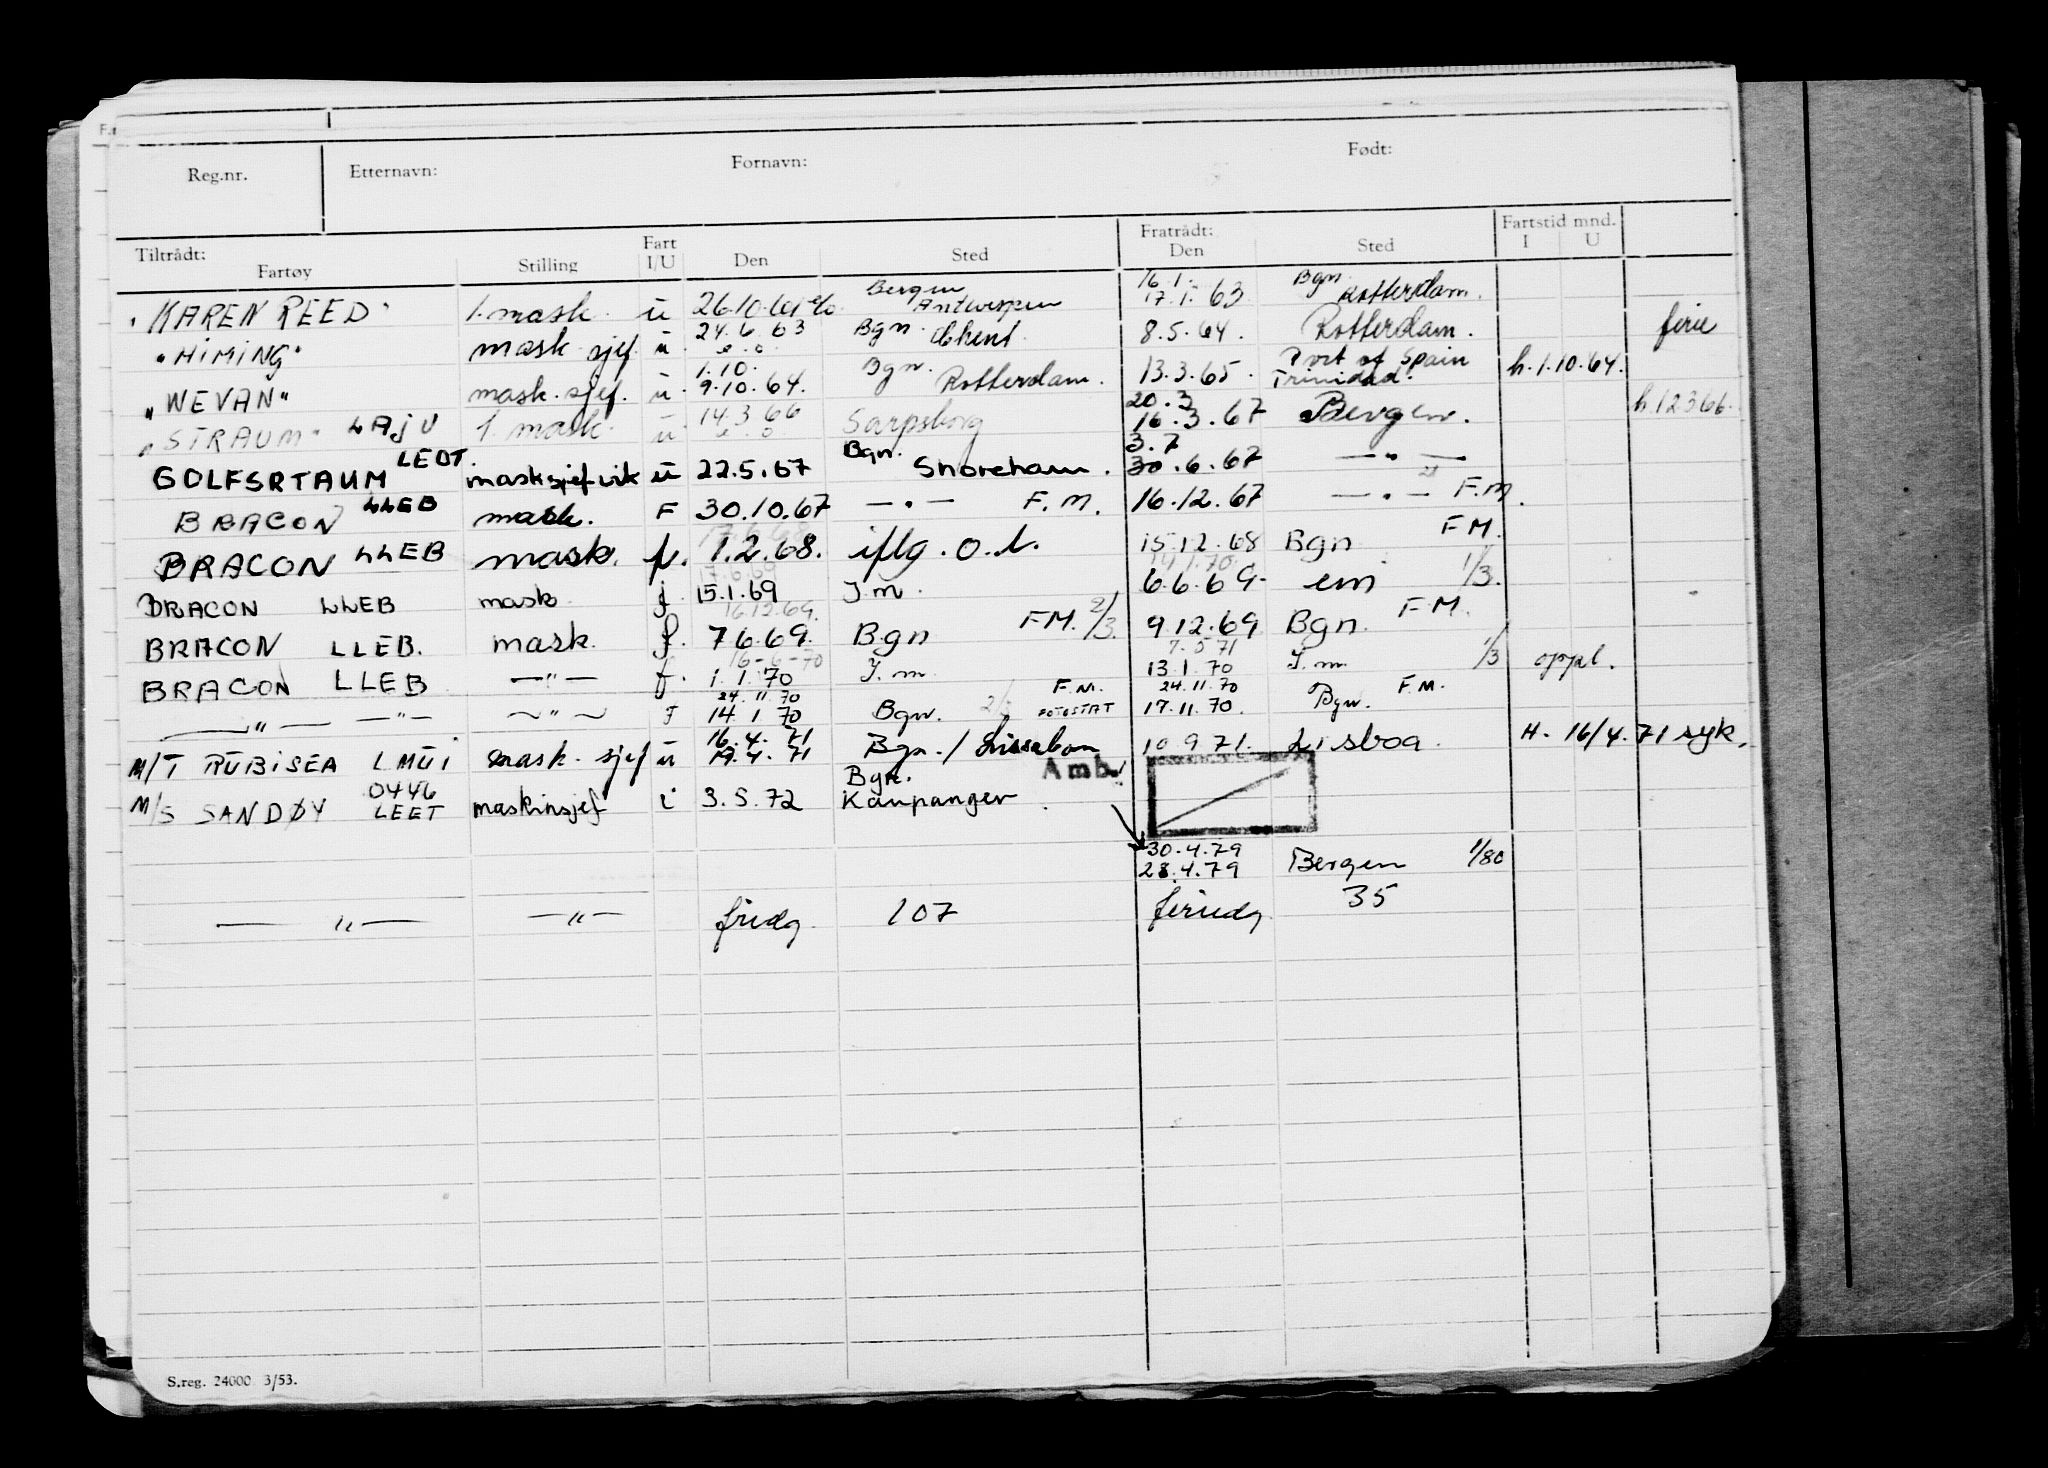 Reg.nr. Etternavn: Fornavn: Født:
Tiltrådt: Fratrådt: Fartstid mnd.
Fartøy Stilling Fart I/U Den Sted Den Sted I U
Bergen 16.1. Bgn.
"KAREN REED" 1. mask. u 26.10.61 Antwerpen 17.1.63 Rotterdam.
"HIMING" mask. sjef. u. 24.6.63 Bgn. Ghent. 8.5.64. Rotterdam. ferie
1.10. Bgn. Port of Spain
"WEVAN" mask. sjef. u. 9.10.64. Rotterdam. 13.3.65. Trinidad. h.1.10.64.
20.3
"STRAUM" LAJU 1. mask. u 14.3.66 Sarpsborg 16.3.67 Bergen. h.12366.
LEDT Bgn. 3.7
GOLFSRTAUM masksjef vik u 22.5.67 Shoreham. 30.6.67 — " —
BRACON LLEB mask. F 30.10.67 — " — F.M. 16.12.67 — " — F.M.
BRACON LLEB mask. f. 1.2.68. iflg. o.l. 15.12.68 Bgn FM.
BRACON LLEB mask. f 15.1.69 J.m. 6.6.69- em 1/3.
16.12.69.
BRACON LLEB. mask. f. 7.6.69. Bgn FM. 2/3. 9.12.69 Bgn. F.M.
16-6-70 7.5.71
BRACON LLEB — " — f. 1.1.70 J.m. 13.1.70 J.m. 1/3 oppl.
24.11.70 F.M. 24.11.70 F.M.
— " — — " — — " — F 14.1.70 Bgn. FOTOSTAT 17.11.70. Bgn.
16.4.71
M/T RUBISEA LMUI mask. sjef u 19.4.71 Bgn. / Lissabon 10.9.71. Lisboa. H. 16/4.71 syk.
Amb.
0446 Bgn.
M/S SANDØY LEET maskinsjef i 3.5.72 Kaupanger.
30.4.79
28.4.79 Bergen 1/80
— " — — " — fridg. 107 feriedg 35
S.reg. 24000 3/53.